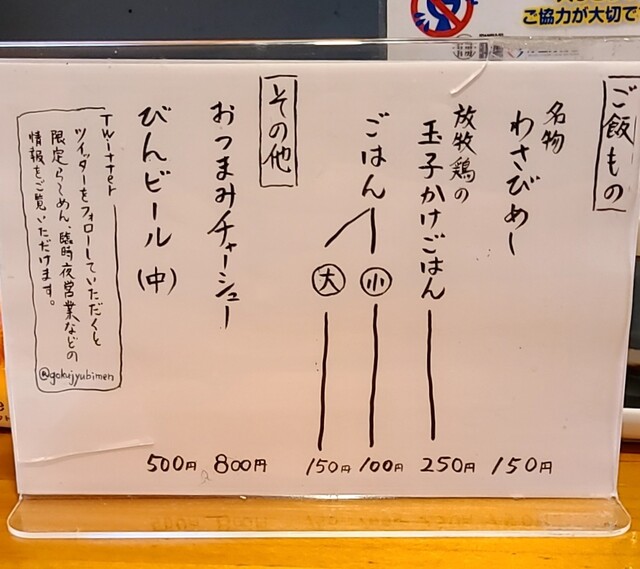 ご協力が大切で
ご飯もの
名物
わさびめし
150円
放牧鶏の
玉子かけごはん
250円
ごはん
小
100円
大
150円
その他
おつまみチャーシュー
800円
びんビール(中)
500円
Twitter
ツイッターをフォローしていただくと
限定らーめん、臨時夜営業などの
情報をご覧いただけます。
@gokujyubimen